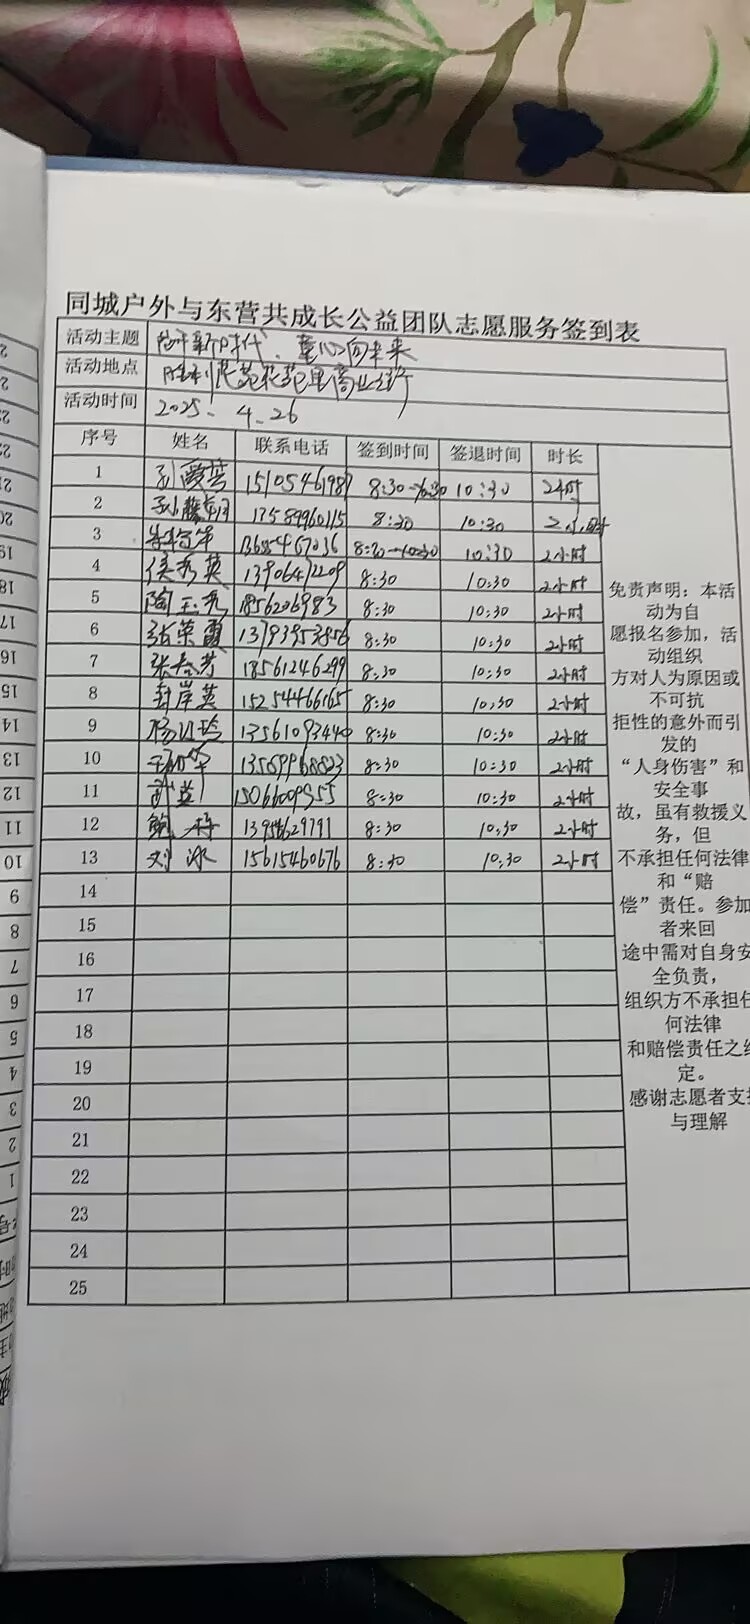 同城户外与东营共成长公益团队志愿服务签到表
活动主题 时代、童心向未来
活动地点 胜利花苑
活动时间 2025. 4.26
序号 姓名 联系电话 签到时间 签退时间 时长
1 孙霞 1510546198 8:30 10:30 2小时
2 孙 13589960115 8:30 10:30 2小时
3 8:30—10:30 10:30 2小时
4 侯秀英 13906472209 8:30 10:30 2小时
5 陶玉秀 1856206983 8:30 10:30 2小时
6 张荣霞 13793953856 8:30 10:30 2小时
7 张春芳 18561246299 8:30 10:30 2小时
8 封岸英 15254466165 8:30 10:30 2小时
9 杨 13561093440 8:30 10:30 2小时
10 8:30 10:30 2小时
11 8:30 10:30 2小时
12 8:30 10:30 2小时
13 刘冰 15615460676 8:30 10:30 2小时
14
15
16
17
18
19
20
21
22
23
24
25
免责声明：本活
动为自
愿报名参加，活
动组织
方对人为原因或
不可抗
拒性的意外而引
发的
“人身伤害”和
安全事
故，虽有救援义
务，但
不承担任何法律
和“赔
偿”责任。参加
者来回
途中需对自身安
全负责，
组织方不承担任
何法律
和赔偿责任之约
定。
感谢志愿者支持
与理解